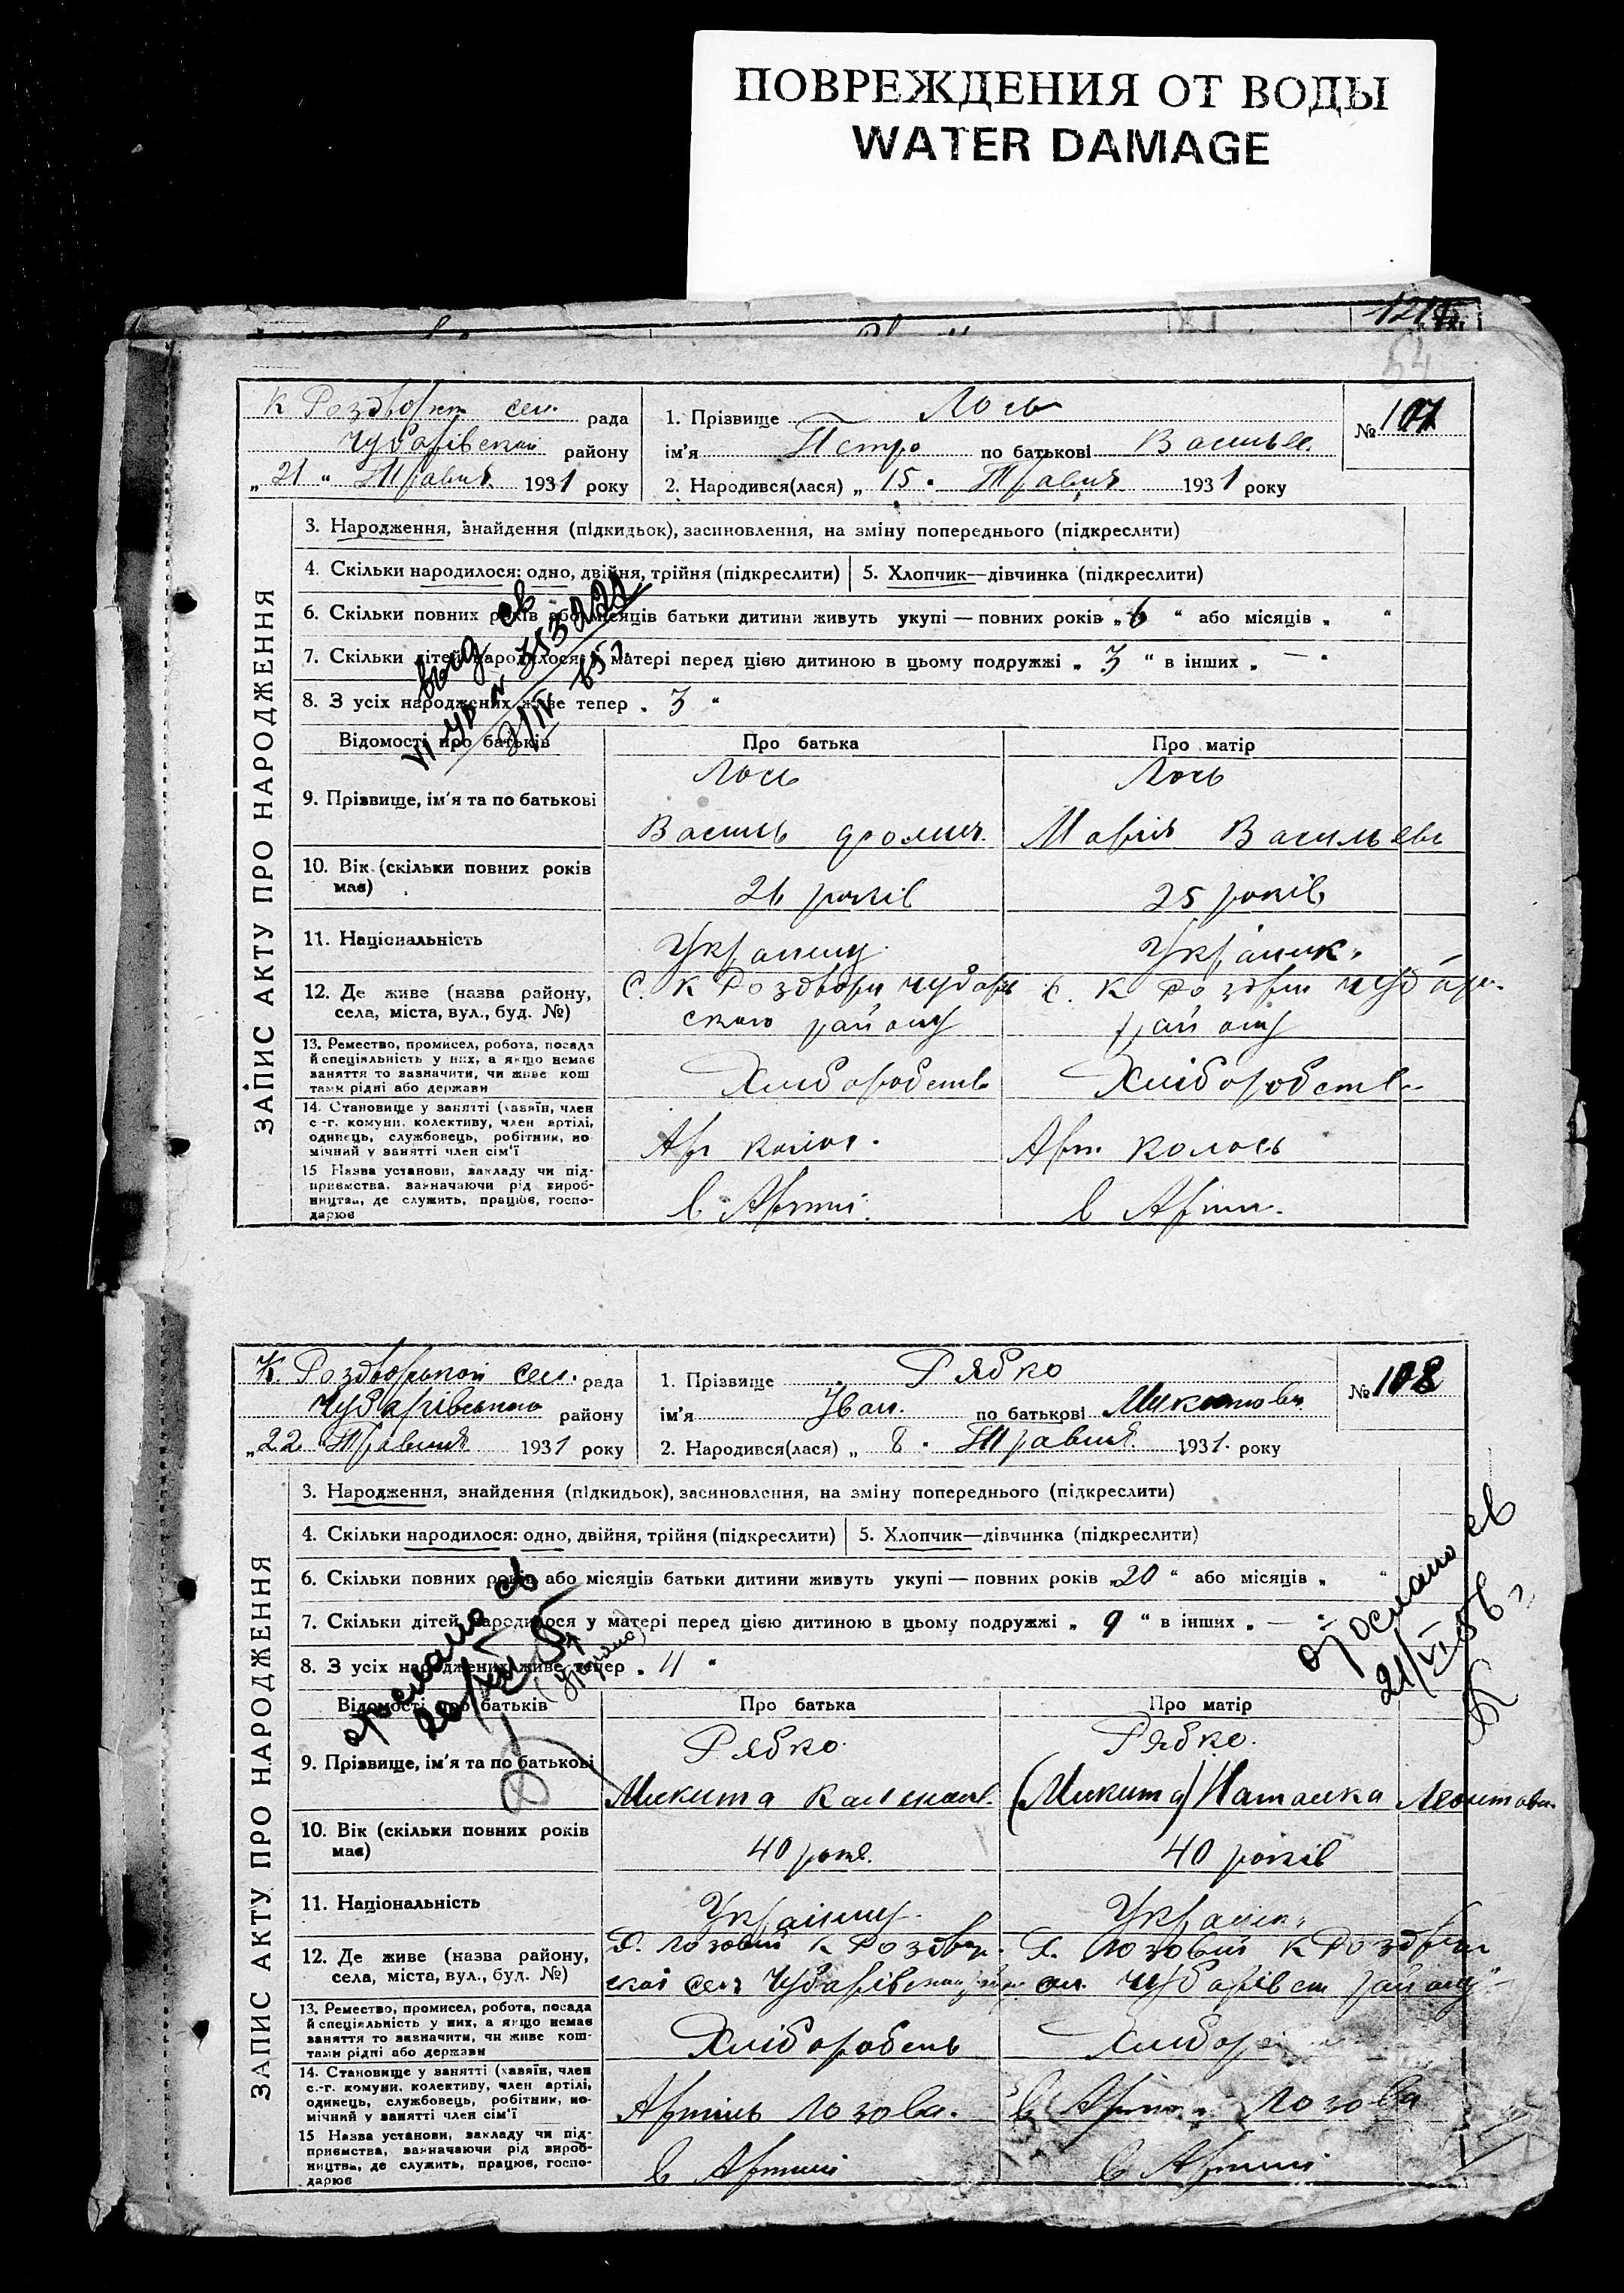 ПОВРЕЖДЕНИЯ ОТ ВОДЫ
WATER DAMAGE
54
К Роздворст сел. рада
Чубарівської району
„ 21 “ Травня 1931 року
1. Прізвище Лось
ім'я Петро по батькові Василь
2. Народився(лася) „ 15 “ Травня 1931 року
№ 107
ЗАПИС АКТУ ПРО НАРОДЖЕННЯ
3. Народження, знайдення (підкидьок), засиновлення, на зміну попереднього (підкреслити)
4. Скільки народилося: одно, двійня, трійня (підкреслити) 5. Хлопчик—дівчинка (підкреслити)
6. Скільки повних років або місяців батьки дитини живуть укупі — повних років „ 6 “ або місяців „ “
7. Скільки дітей народилося у матері перед цією дитиною в цьому подружжі „ 3 “ в інших „ — “
8. З усіх народжених живе тепер „ 3 “
Відомості про батьків Про батька Про матір
9. Прізвище, ім'я та по батькові
Лось Лось
Василь Марія
10. Вік (скільки повних років має)
26 років 25 років
11. Національність
Українц. Українк.
12. Де живе (назва району, села, міста, вул., буд. №)
С. К Роздори Чубарі С. К Роздри Чубарі
ського району району
13. Ремество, промисел, робота, посада й спеціяльність у них, а якщо немає заняття то зазначити, чи живе коштами рідні або держави
Хліборобств Хліборобств
14. Становище у занятті (хазяїн, член с.-г. комуни, колективу, член артілі, одинець, службовець, робітник, помічний у занятті член сім'ї
Арт Колос. Арт. Колось
15 Назва установи, закладу чи підприємства, зазначаючи рід виробництва, де служить, працює, господарює
в Артілі. в Артіл.
К. Роздворської сел. рада
Чубарівського району
„ 22 “ Травня 1931 року
1. Прізвище Рябко
ім'я Іван. по батькові Микитович
2. Народився(лася) „ 8 “ Травня 1931 року
№ 108
ЗАПИС АКТУ ПРО НАРОДЖЕННЯ
3. Народження, знайдення (підкидьок), засиновлення, на зміну попереднього (підкреслити)
4. Скільки народилося: одно, двійня, трійня (підкреслити) 5. Хлопчик—дівчинка (підкреслити)
6. Скільки повних років або місяців батьки дитини живуть укупі — повних років „ 20 “ або місяців „
7. Скільки дітей народилося у матері перед цією дитиною в цьому подружжі „ 9 “ в інших „ — “
8. З усіх народжених живе тепер „ 4 “
Відомості про батьків Про батька Про матір
9. Прізвище, ім'я та по батькові
Рябко. Рябко.
Микита (Микита) Наталка
10. Вік (скільки повних років має)
40 років. 40 років
11. Національність
Українц. Українк.
12. Де живе (назва району, села, міста, вул., буд. №)
Х. Лозовий К Роздвор. Х. Лозовий К Роздвор
ської сел Чубарівського Чубарівськ району
13. Ремество, промисел, робота, посада й спеціяльність у них, а якщо немає заняття то зазначити, чи живе коштами рідні або держави
Хліборобець Хлібор
14. Становище у занятті (хазяїн, член с.-г. комуни, колективу, член артілі, одинець, службовець, робітник, помічний у занятті член сім'ї
Артіль Лозова. в Артіл Лозова
15 Назва установи, закладу чи підприємства, зазначаючи рід виробництва, де служить, працює, господарює
в Артілі в Артілі